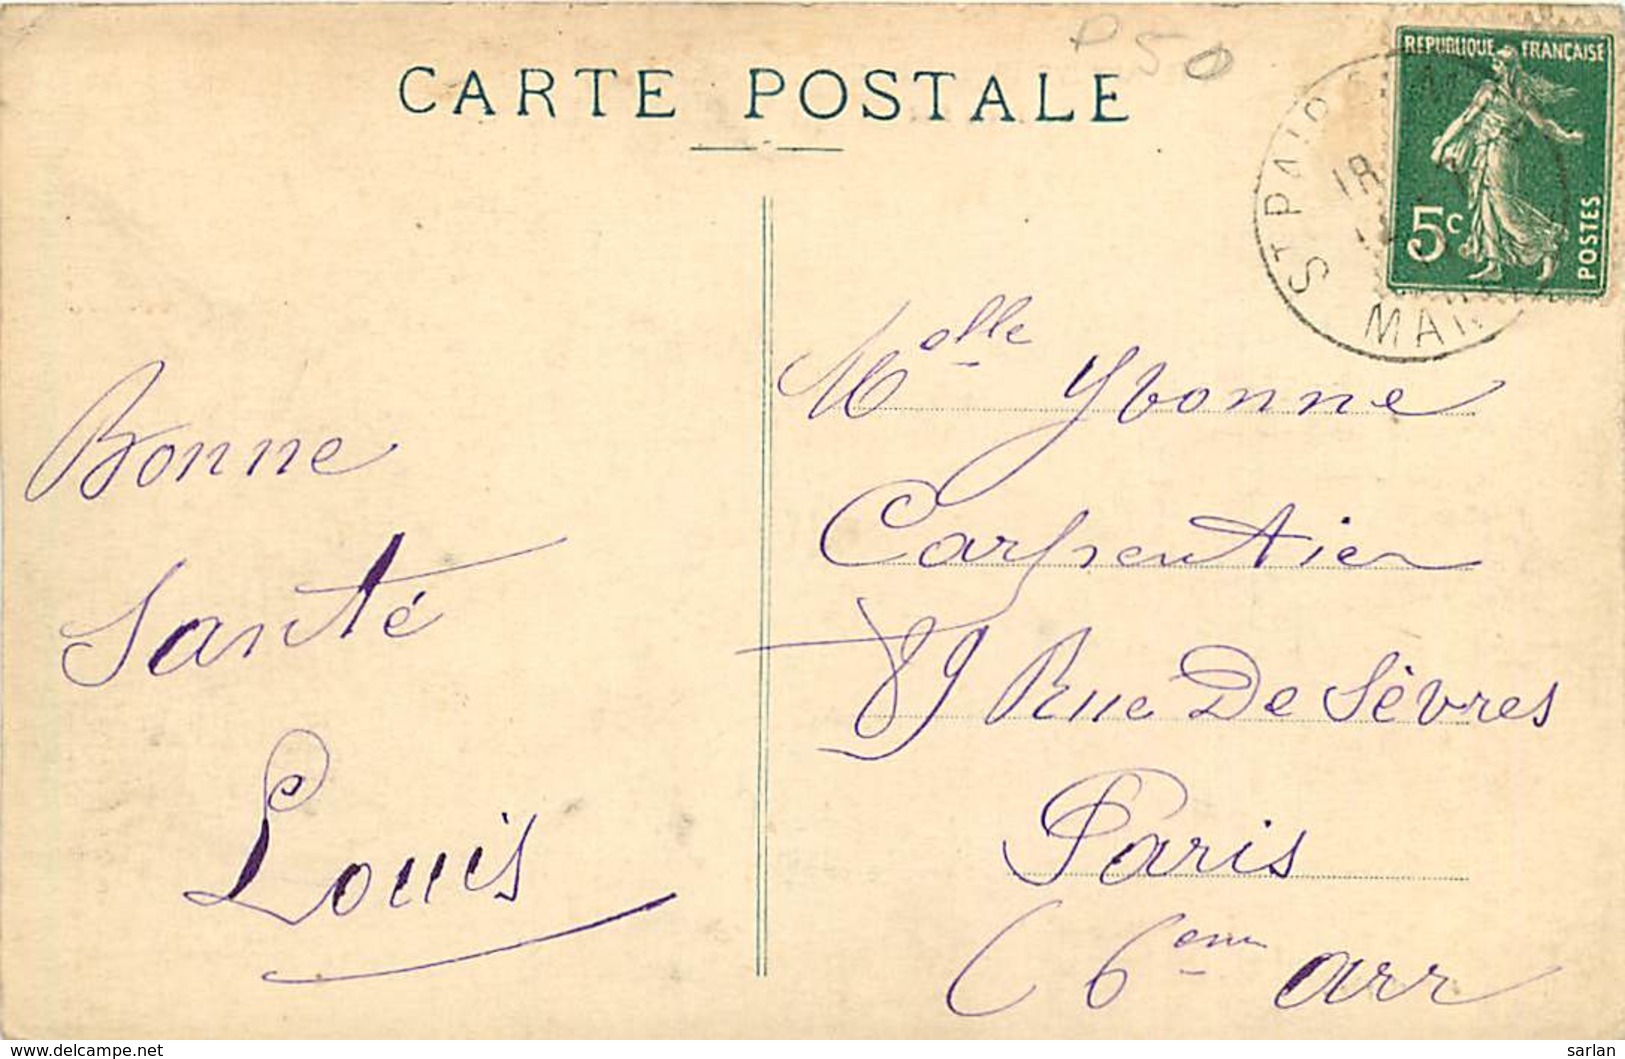 P50
CARTE POSTALE
REPUBLIQUE FRANÇAISE
5c
POSTES
ST PAIR
MAN
Bonne
Santé
Louis
Melle Yvonne
Carpentier
89 Rue De Sèvres
Paris
(6ème arr
www.delcampe.net
sarlan